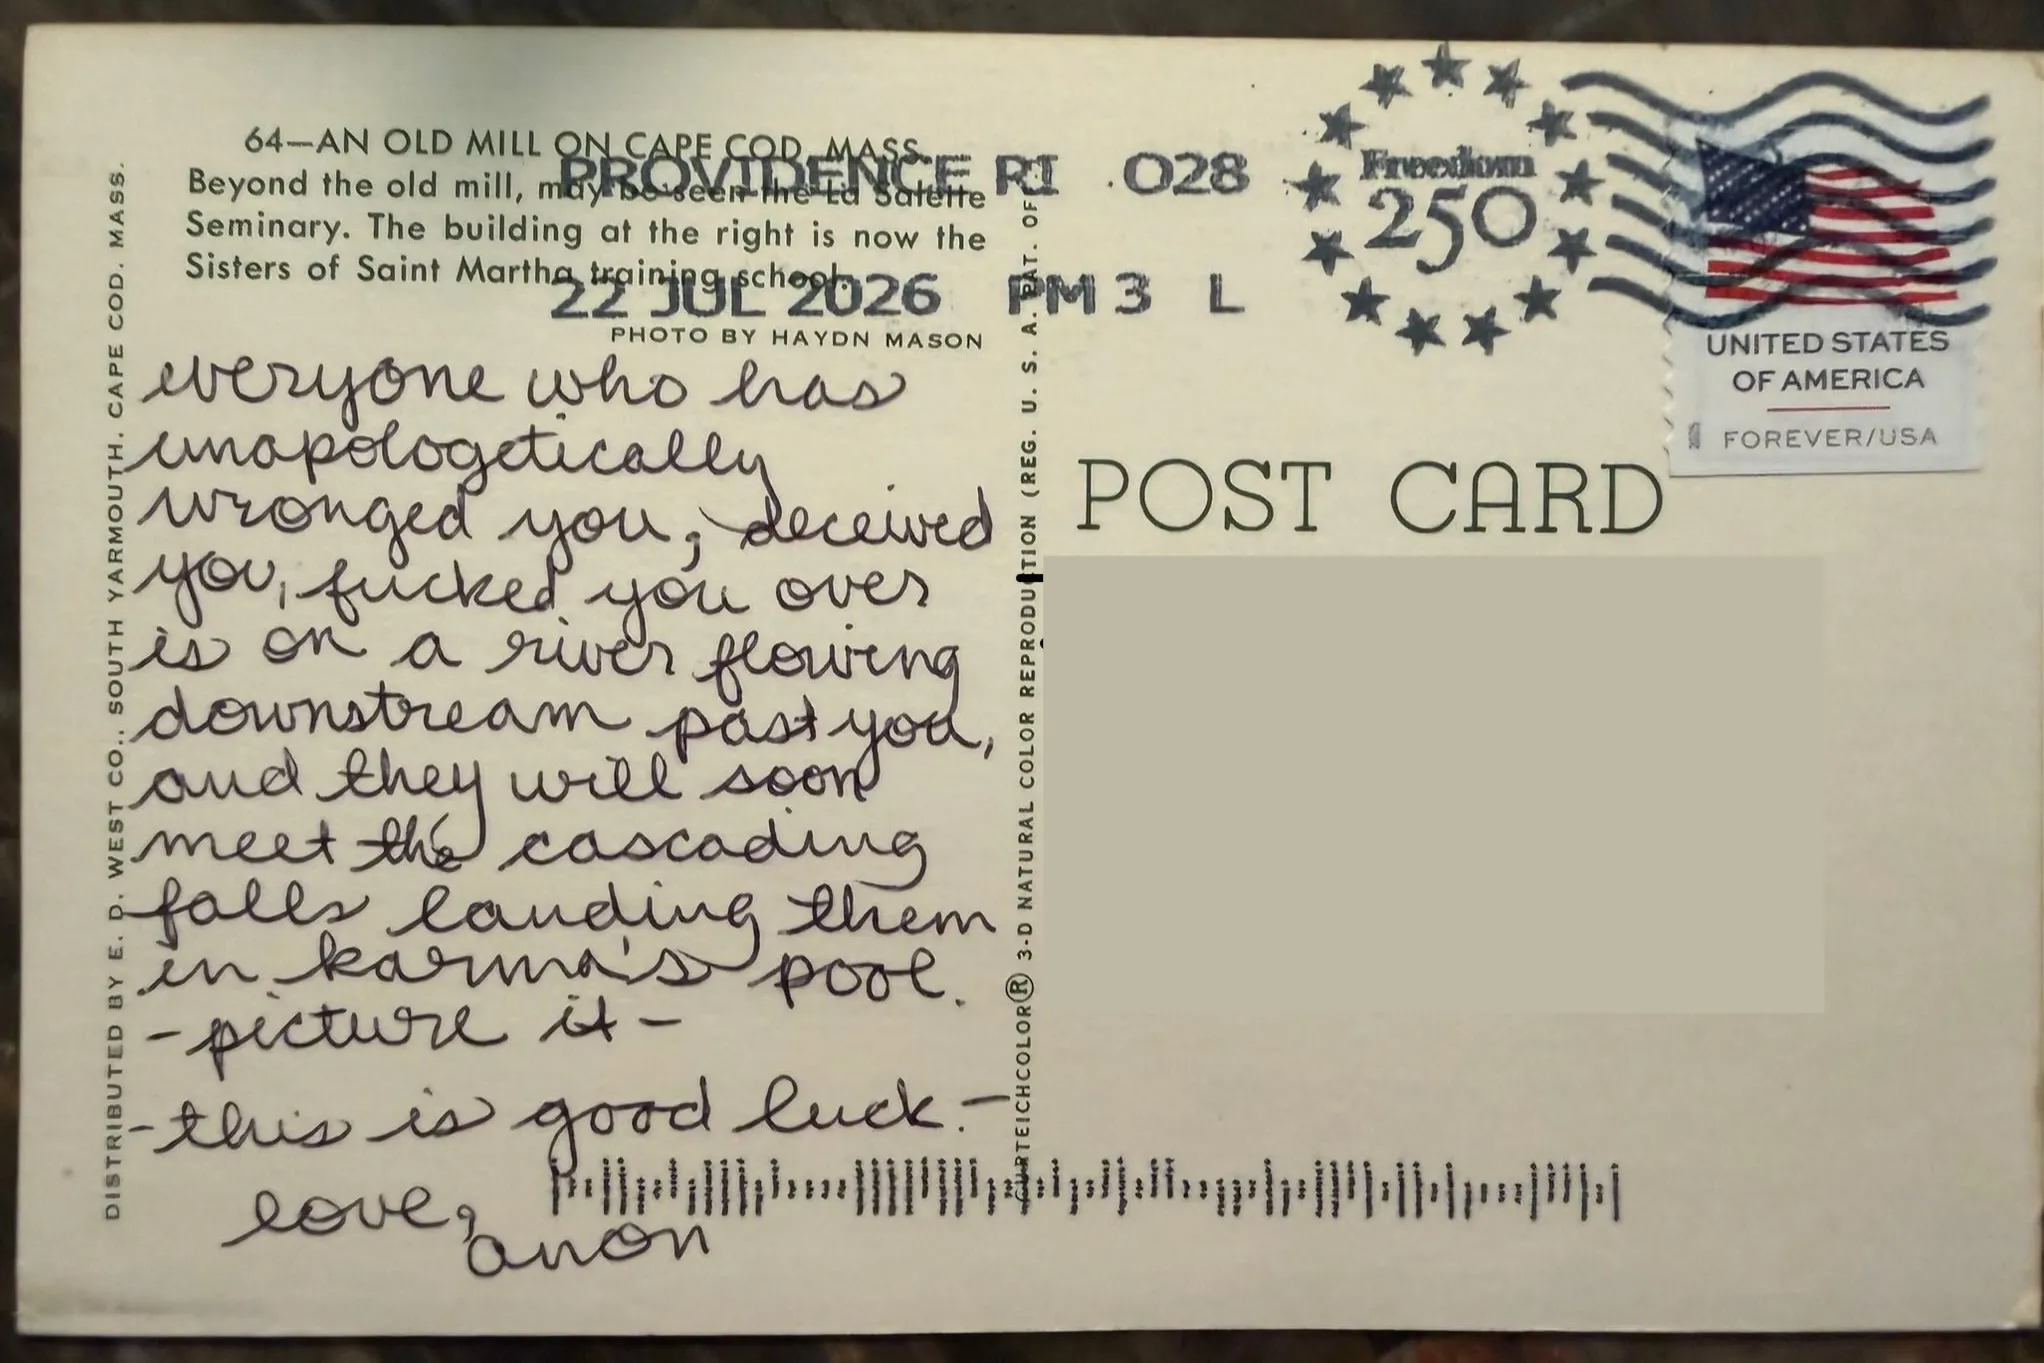 64—AN OLD MILL ON CAPE COD, MASS.
Beyond the old mill, may be seen the La Salette
Seminary. The building at the right is now the
Sisters of Saint Martha training school.
PHOTO BY HAYDN MASON
PROVIDENCE RI 028
22 JUL 2026 PM 3 L
Freedom
250
UNITED STATES
OF AMERICA
FOREVER/USA
DISTRIBUTED BY E. D. WEST CO., SOUTH YARMOUTH, CAPE COD, MASS.
everyone who has
unapologetically
wronged you, deceived
you, fucked you over
is on a river flowing
downstream past you,
and they will soon
meet the cascading
falls landing them
in karma's pool.
- picture it -
- this is good luck. -
love,
anon
CURTEICHCOLOR® 3-D NATURAL COLOR REPRODUCTION (REG. U. S. A. PAT. OF
POST CARD